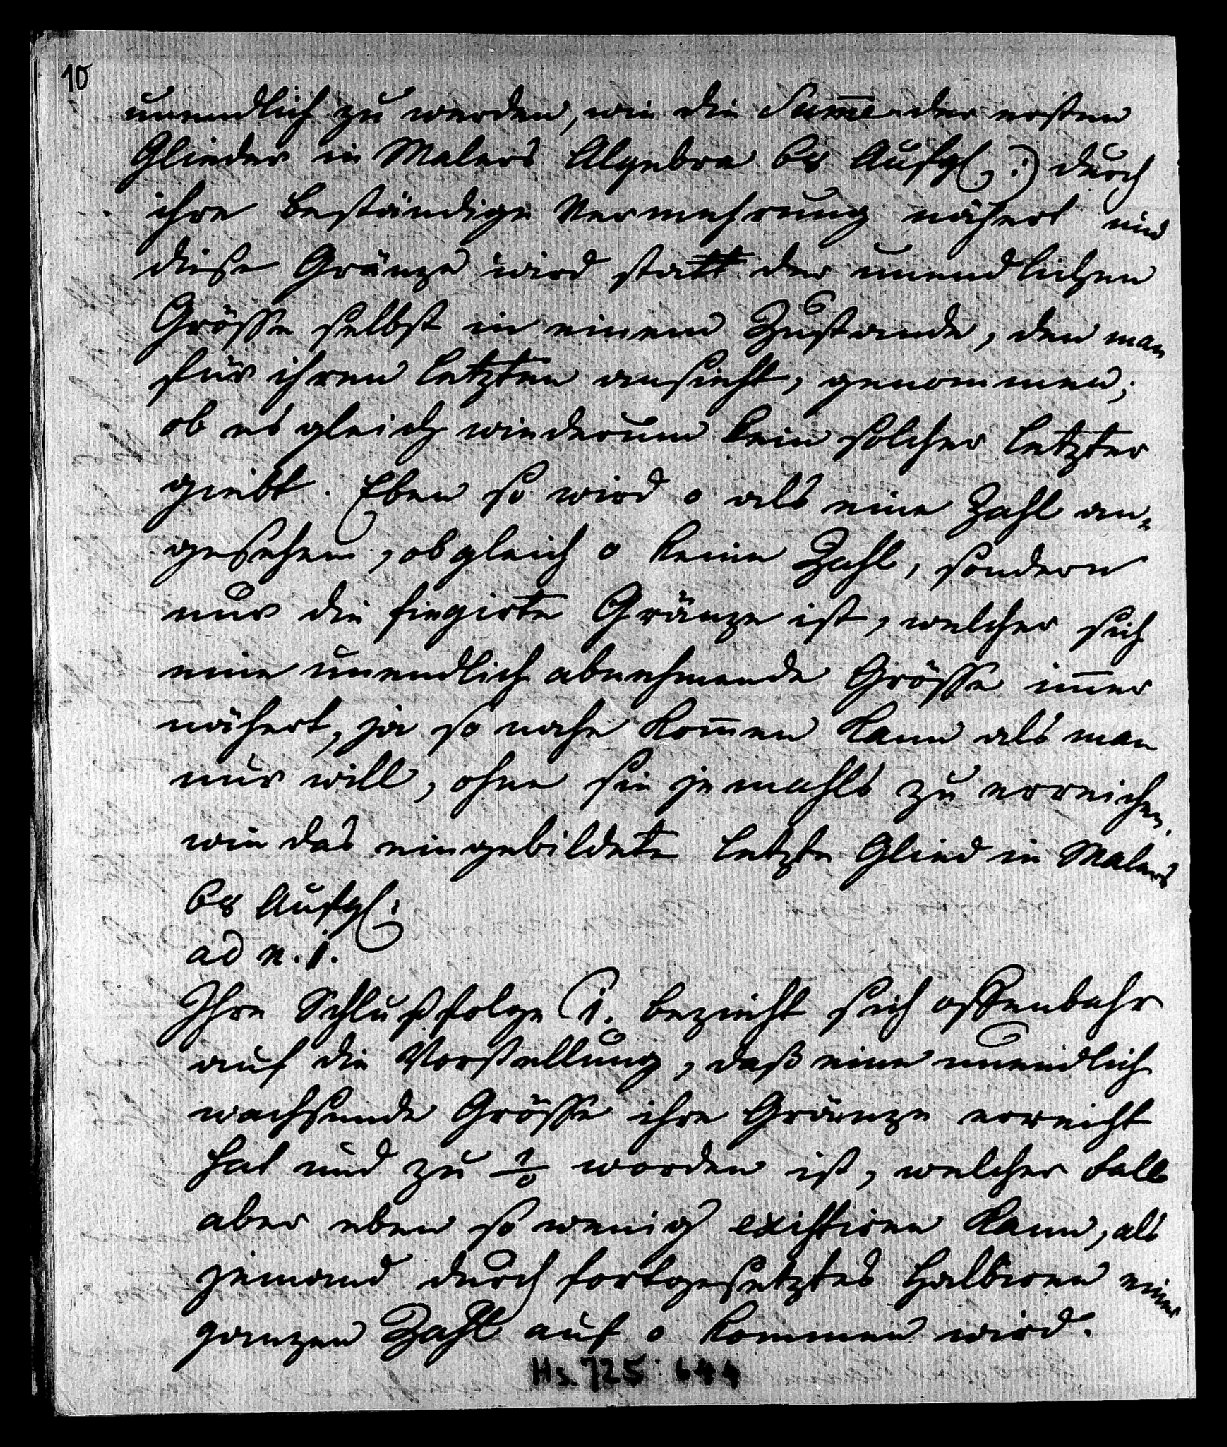 10
unendlich zu werden, wie die Sum̅e der ersten
Glieder in Malers Algebra 68 Aufg: :) durch
ihre beständige Vermehrung nähert und
diese Gränze wird statt der unendlichen
Grösse selbst in einem Zustande, den man
für ihren letzten ansieht, genommen;
ob es gleich wiederum kein solcher letzter
giebt. Eben so wird 0 als eine Zahl an-
gesehen, obgleich 0 keine Zahl, sondern
nur die fingirte Gränze ist, welcher sich
eine unendlich abnehmende Grösse im̅er
nähert, ja so nahe kom̅en kann als man
nur will, ohne sie jemahls zu erreichen,
wie das eingebildete letzte Glied in Malers
68 Aufg:
ad n. 1.
Ihre Schlußfolge 1. bezieht sich offenbahr
auf die Vorstellung, daß eine unendlich
wachsende Grösse ihre Gränze erreicht
hat und zu 1/0 worden ist, welcher Fall
aber eben so wenig existiren kann, als
jemand durch fortgesetztes Halbiren einer
ganzen Zahl auf 0 kommen wird.
Hs 725 : 644